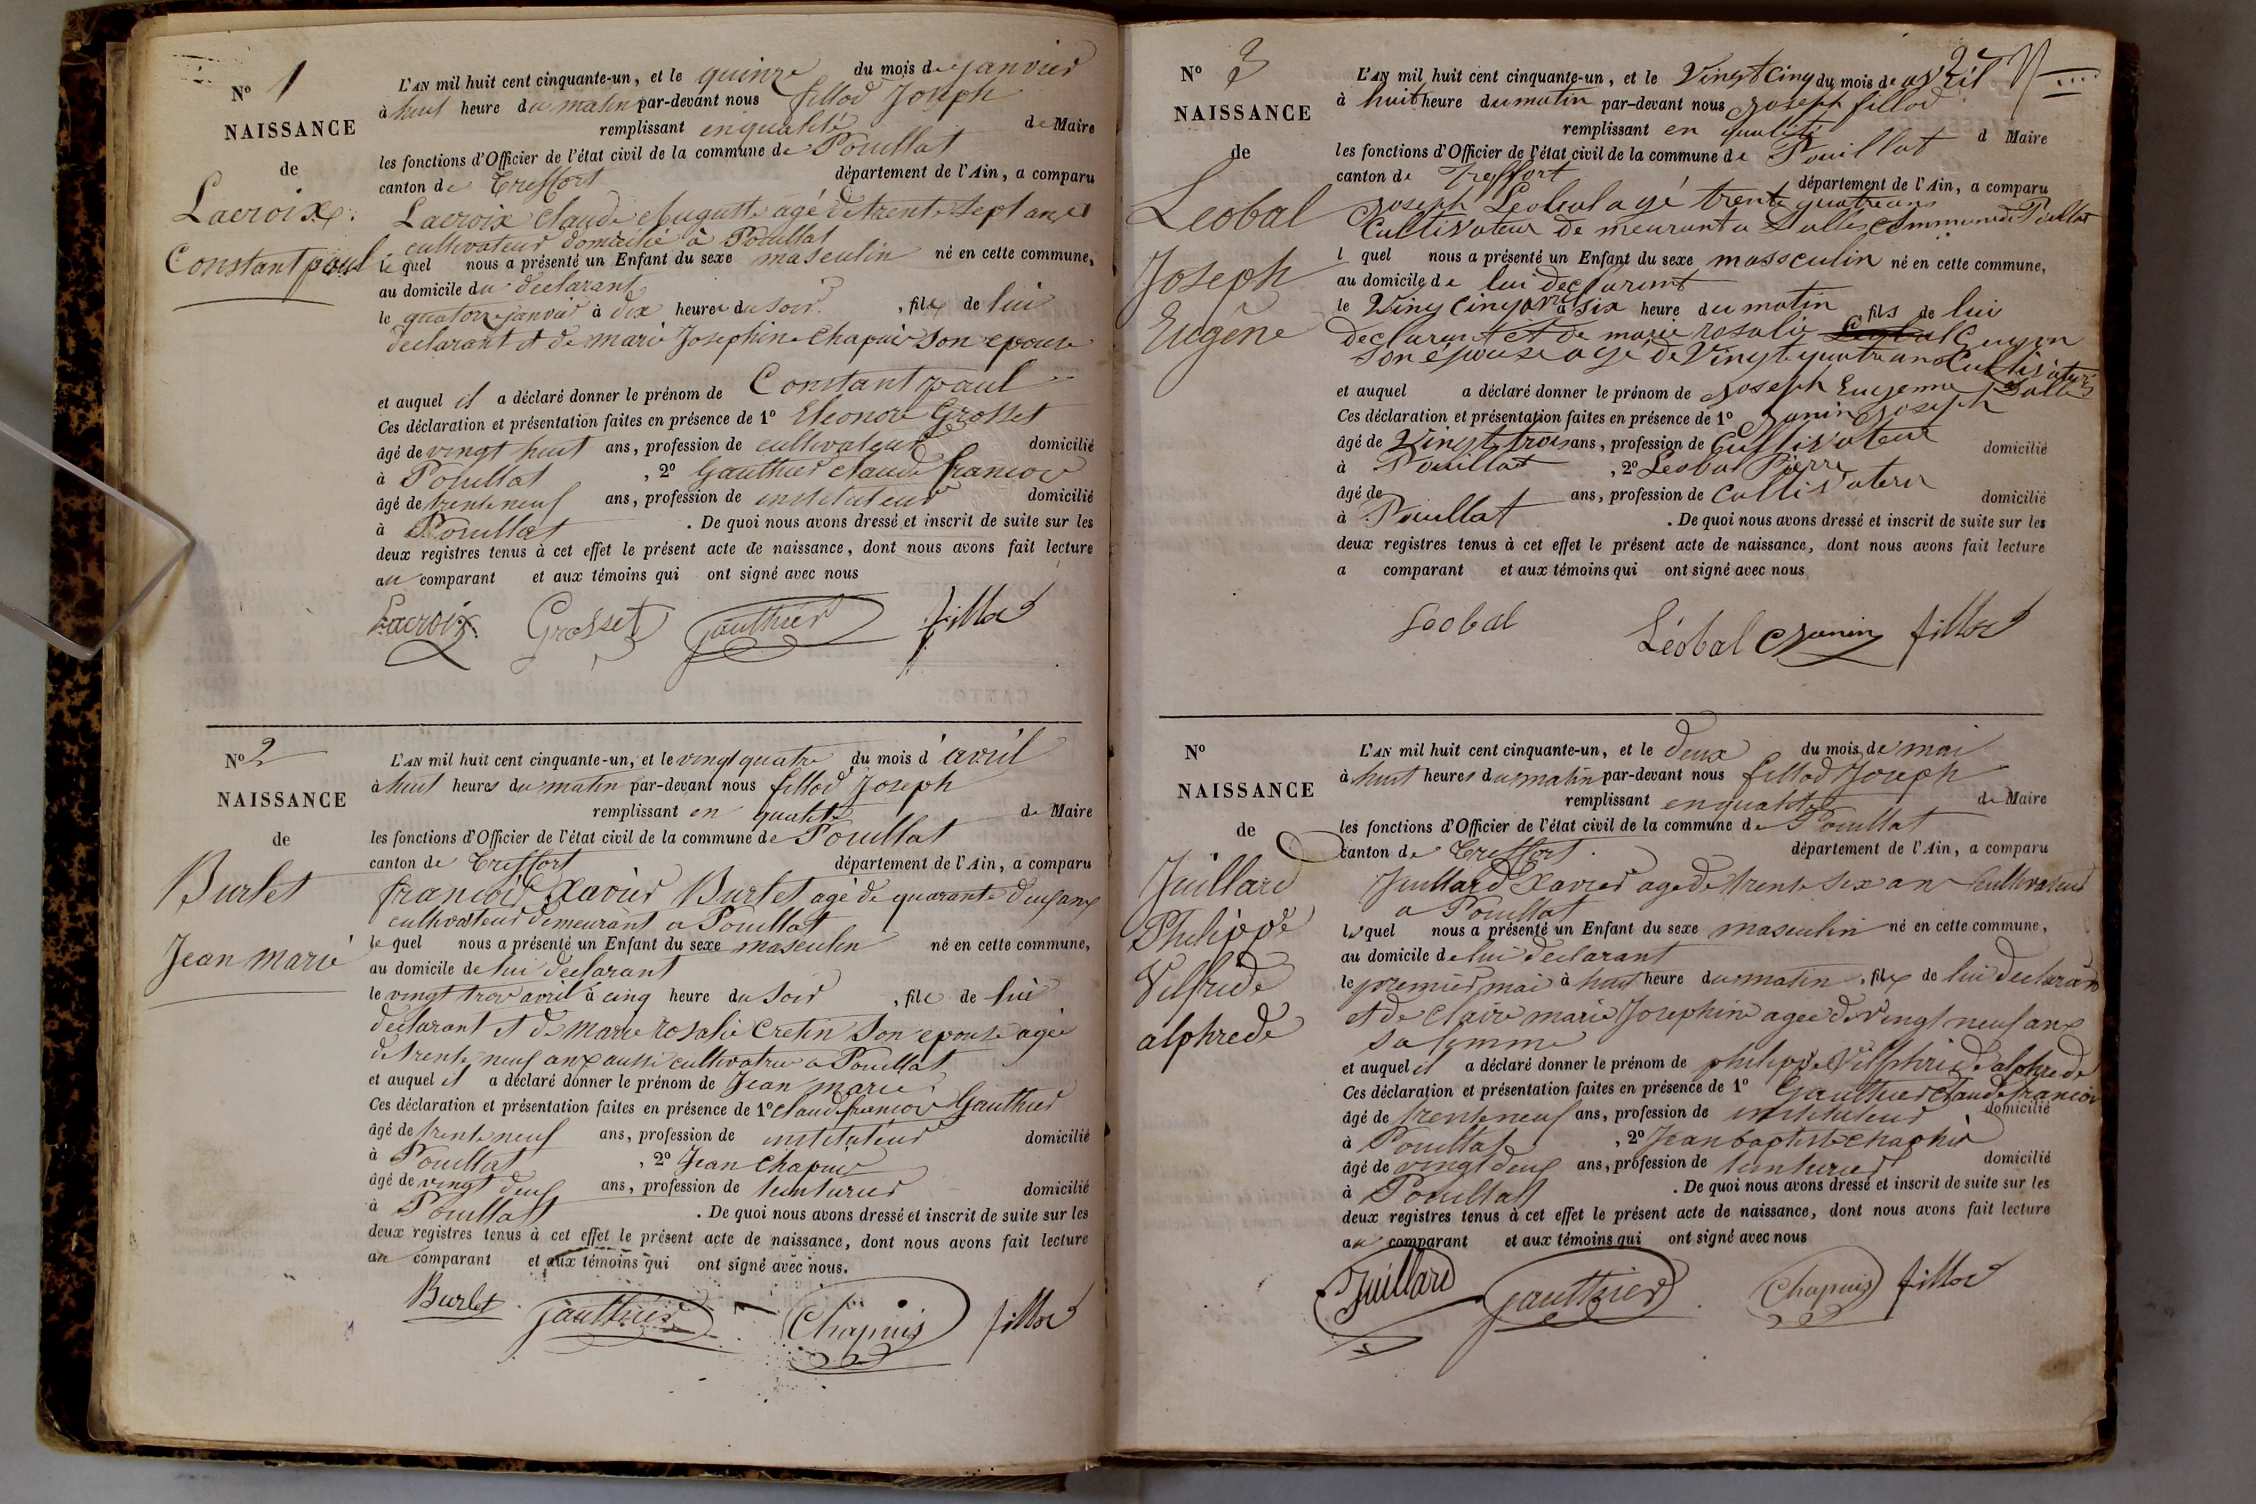 N° 1
NAISSANCE
de
Lacroix
Constant paul
L'AN mil huit cent cinquante-un, et le quinze du mois de janvier
à huit heure du matin par-devant nous fillod Joseph
remplissant en qualité de Maire
les fonctions d'Officier de l'état civil de la commune de Pouillat
canton de Treffort département de l'Ain, a comparu
Lacroix Claude Auguste agé de trente sept ans
cultivateur domicilié à Pouillat
le quel nous a présenté un Enfant du sexe masculin né en cette commune,
au domicile du declarant
le quatorze janvier à dix heures du soir, fils de lui
declarant et de marie Josephine Chapuis son epouse
et auquel il a déclaré donner le prénom de Constant paul
Ces déclaration et présentation faites en présence de 1° Eleonore Grosset
âgé de vingt huit ans, profession de cultivateur domicilié
à Pouillat, 2° Gauthier Claude francois
âgé de trente neuf ans, profession de instituteur domicilié
à Pouillat. De quoi nous avons dressé et inscrit de suite sur les
deux registres tenus à cet effet le présent acte de naissance, dont nous avons fait lecture
au comparant et aux témoins qui ont signé avec nous
Lacroix Grosset Gauthier fillod
N° 2
NAISSANCE
de
Burlet
Jean marie
L'AN mil huit cent cinquante-un, et le vingt quatre du mois d'avril
à huit heures du matin par-devant nous fillod Joseph
remplissant en qualité de Maire
les fonctions d'Officier de l'état civil de la commune de Pouillat
canton de Treffort département de l'Ain, a comparu
francois Xavier Burlet agé de quarante deux ans
cultivateur demeurant a Pouillat
le quel nous a présenté un Enfant du sexe masculin né en cette commune,
au domicile de lui declarant
le vingt trois avril à cinq heure du soir, fils de lui
declarant et de marie rosalie Cretin son epouse agée
de trente neuf ans aussi cultivatrice a Pouillat
et auquel il a déclaré donner le prénom de Jean marie
Ces déclaration et présentation faites en présence de 1° Claude francois Gauthier
âgé de trente neuf ans, profession de instituteur domicilié
à Pouillat, 2° Jean Chapuis
âgé de vingt deux ans, profession de teinturier domicilié
à Pouillat. De quoi nous avons dressé et inscrit de suite sur les
deux registres tenus à cet effet le présent acte de naissance, dont nous avons fait lecture
au comparant et aux témoins qui ont signé avec nous.
Burlet Gauthier Chapuis fillod
N° 3
NAISSANCE
de
Léobal
Joseph
Eugêne
L'AN mil huit cent cinquante-un, et le Vingt cinq du mois de avril
à huit heure du matin par-devant nous Joseph fillod
remplissant en qualité d Maire
les fonctions d'Officier de l'état civil de la commune de Pouillat
canton de Treffort département de l'Ain, a comparu
Joseph Léobal agé trente quatre ans
Cultivateur de meurant a Salles Commune de Pouillat
l quel nous a présenté un Enfant du sexe massculin né en cette commune,
au domicile de lui declarant
le Ving cinq avril à six heure du matin fils de lui
declarant et de marie rosalie Guyon
son épouse agé de Vingt quatre ans Cultivatrice
et auquel a déclaré donner le prénom de Joseph Eugenne Salles
Ces déclaration et présentation faites en présence de 1° Janin Joseph
âgé de Vingt trois ans, profession de Cultivateur domicilié
à Pouillat, 2° Léobal Pierre
âgé de ans, profession de Cultivateur domicilié
à Pouillat. De quoi nous avons dressé et inscrit de suite sur les
deux registres tenus à cet effet le présent acte de naissance, dont nous avons fait lecture
a comparant et aux témoins qui ont signé avec nous
Leobal Léobal Janin fillod
N°
NAISSANCE
de
Juillard
Philippe
Vilfride
alphrede
L'AN mil huit cent cinquante-un, et le deux du mois de mai
à huit heures du matin par-devant nous fillod Joseph
remplissant en qualité de Maire
les fonctions d'Officier de l'état civil de la commune de Pouillat
canton de Treffort département de l'Ain, a comparu
Juillard Xavier agé de trente six ans Cultivateur
a Pouillat
le quel nous a présenté un Enfant du sexe masculin né en cette commune,
au domicile de lui declarant
le premier mai à huit heure du matin, fils de lui declarant
et de Claire marie Josephine agee de vingt neuf ans
sa femme
et auquel il a déclaré donner le prénom de philippe Vilphride alphrede
Ces déclaration et présentation faites en présence de 1° Gauthier Claude francois
âgé de trente neuf ans, profession de instituteur, domicilié
à Pouillat, 2° Jean baptiste chaphis
âgé de vingt deux ans, profession de teinturier domicilié
à Pouillat. De quoi nous avons dressé et inscrit de suite sur les
deux registres tenus à cet effet le présent acte de naissance, dont nous avons fait lecture
au comparant et aux témoins qui ont signé avec nous
Juillard Gauthier Chapuis fillod